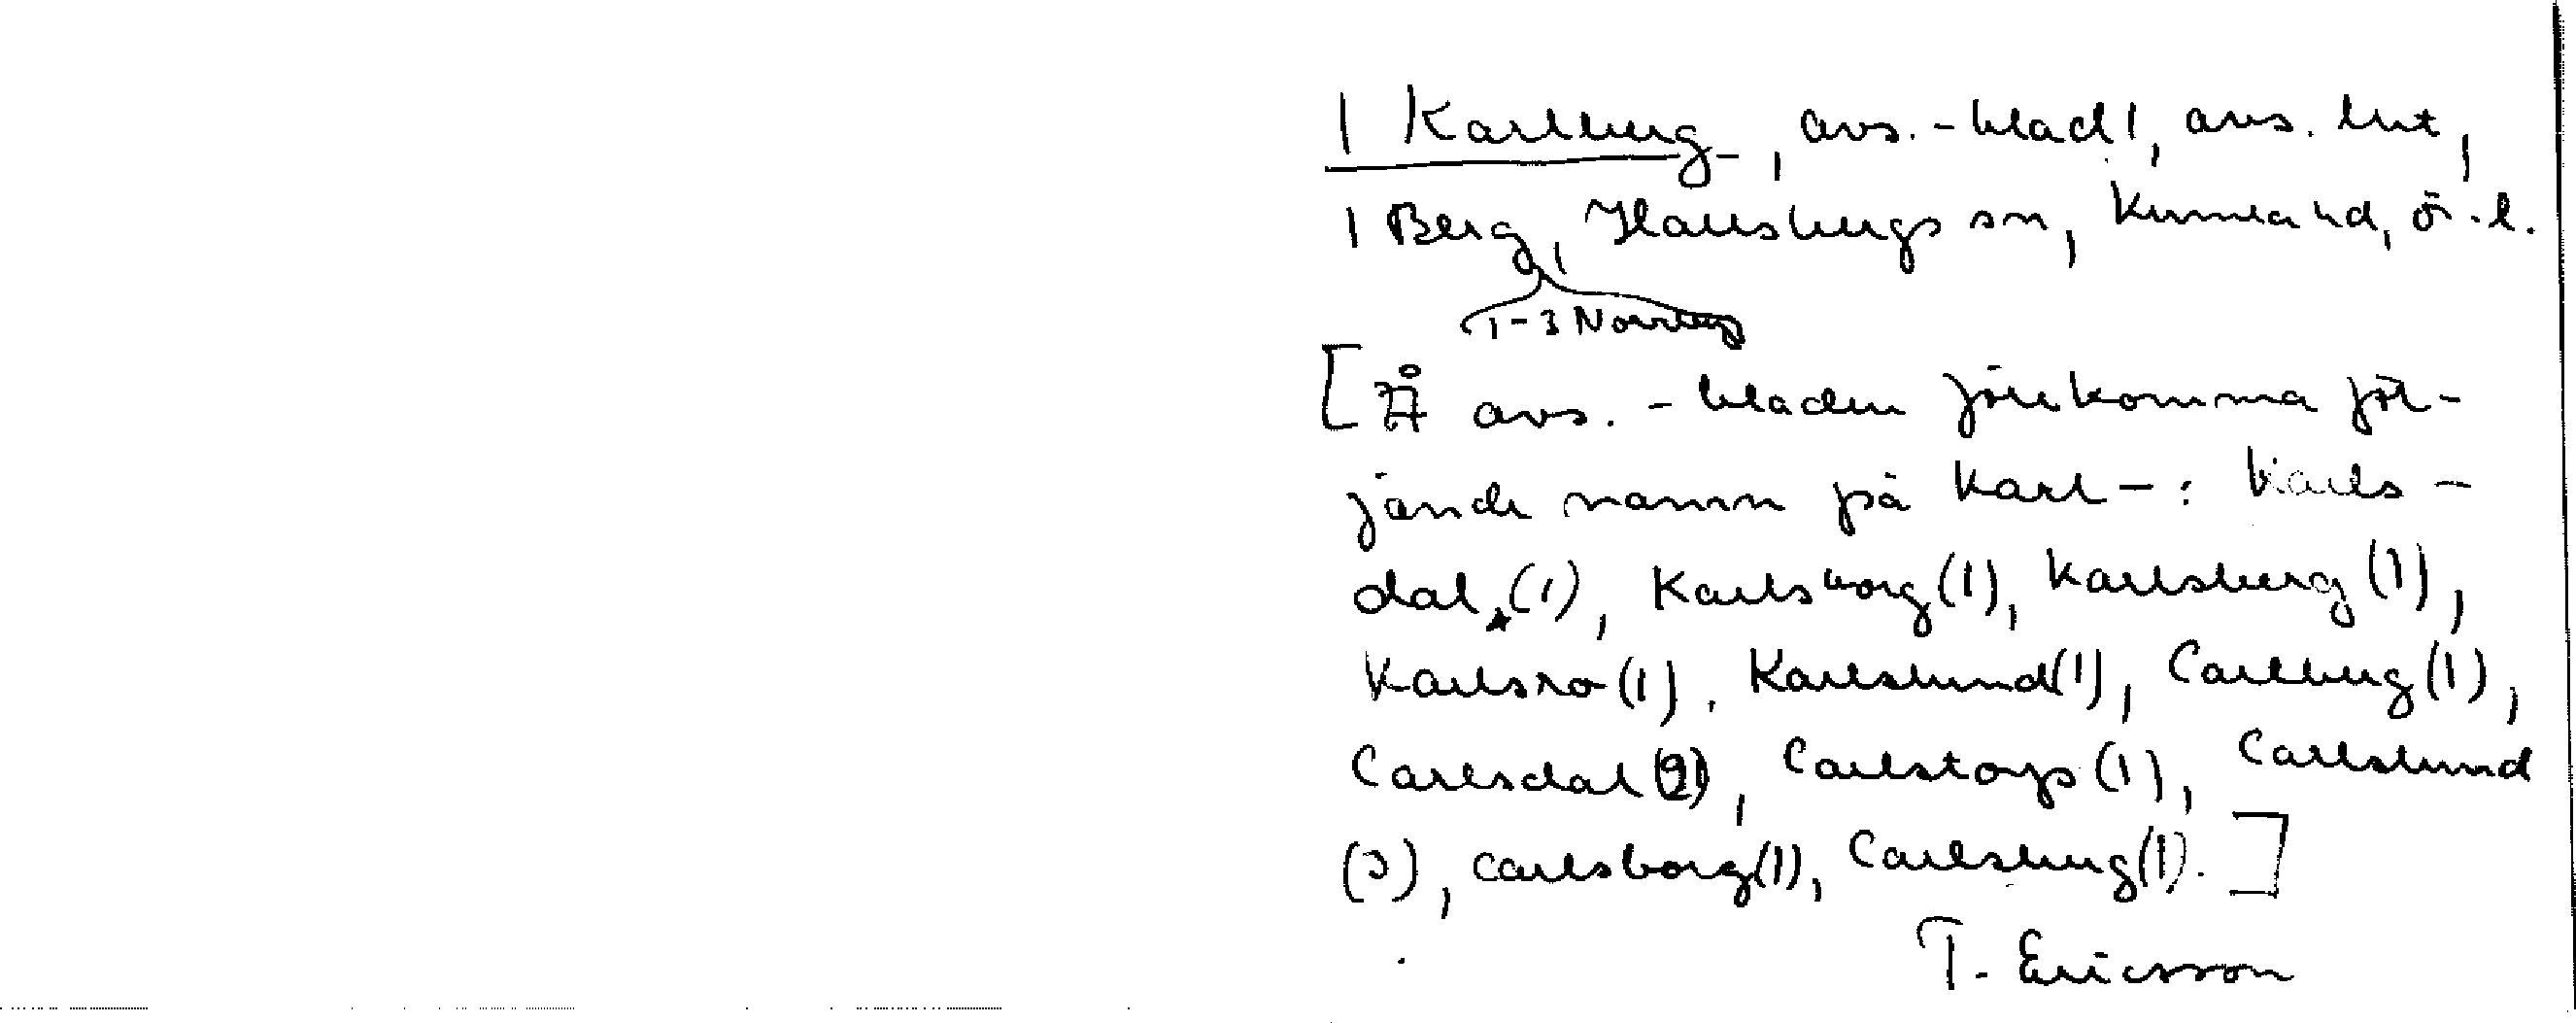 1 Karlberg, avs.-blad 1, avs. lut,
1 Berg, Hallsbergs sn, Kumla hd, ör. l.
1-3 Norrberg
[Å avs.-bladen förekomma föl-
jande namn på Karl-: Karls-
dal (1), Karlsborg (1), Karlsberg (1),
Karlsro (1), Karlslund (1), Carlberg (1),
Carlsdal (2), Carlstorp (1), Carlslund
(3), Carlsborg (1), Carlsberg (1).]
T. Ericsson